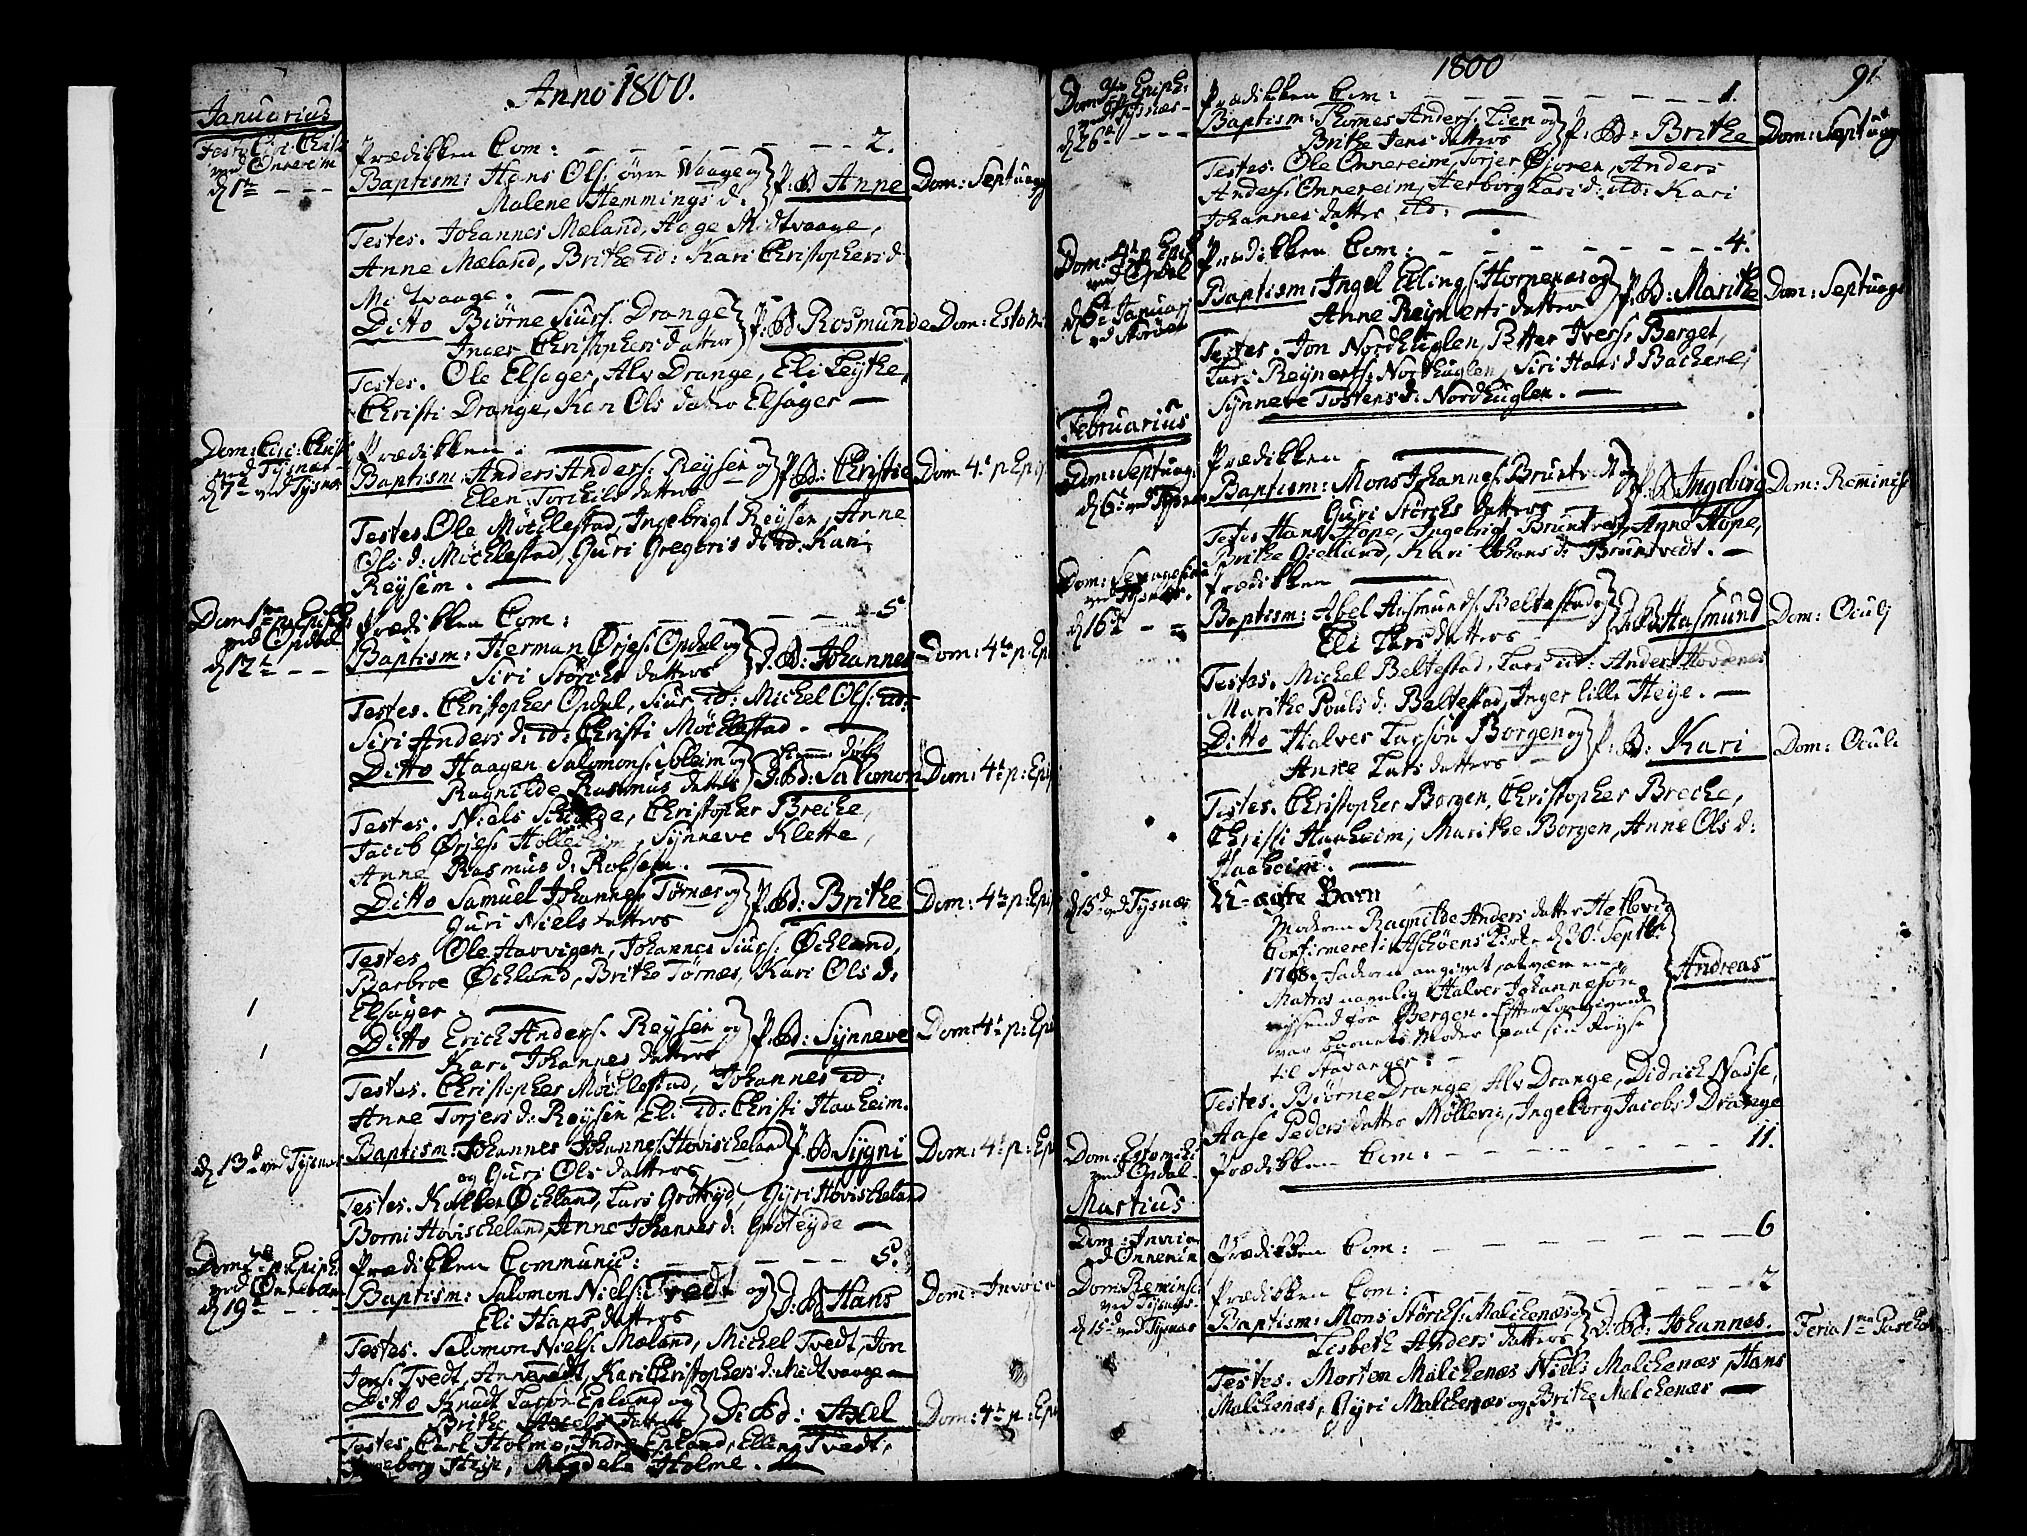 Anno 1800.
Januarius
Festo Circ: Christi
ved Onnereim
d 1te
Prædikken Com: 2.
Baptism: Hans Ols: øvre Waage og
Malene Hemmings d:
P: B: Anne
Dom: Septuag
Testes. Johannes Mæland, Aage Midtvaage,
Anne Mæland, Brithe id: Kari Christophers d:
Midtvaage.
Ditto Biørne Siurs: Drange
Inger Christophers datter
P: B: Rosmunde
Dom: Esto M
Testes. Ole Elsager, Alv Drange, Eli Teythe,
Christi Drange, Kari Ols datter Elsager
Dom: Circ: Christi
ved Tysnæs
d 7de ved Tysnæs
Prædikken.
Baptism: Anders Anders: Reysen og
Elen Torchils datter
P: B: Christie
Dom 4de p: Epip
Testes. Ole Möchlestad, Ingebrigt Reysen, Anne
Ols d: Möchlestad, Guri Gregoris d: id: Kari
Reysem.
Dom 1ma p: Epiph
ved Opdal
d 12te
Prædikken Com: 5
Baptism: Herman Ørjes: Opdal og
Siri Störchs datter
D: B: Johannes
Dom: 4de p: Epi
Testes. Christopher Opdal, Siur id: Michel Ols: id:
Siri Anders d: id: Christi Möchlestad.
Ditto Haagen Salomons: Soleim og
Ragnilde Rasmus datter
Hjemme døbt
D: B: Salomon
Dom: 4de p: Epi
Testes. Niels Schalde, Christopher Breche,
Jacob Ørjes: Holleheim, Synneve Klette,
Anne Rasmus d: Rolsem.
Ditto Samuel Johannes: Tørnæs og
Guri Niels datter
P: B: Brithe
Dom: 4de p: Epi
Testes. Ole Havvigen, Johannes Siurs: Øchland,
Barbroe Øchland, Brithe Tørnæs, Kari Ols d:
Elsager.
Ditto Erich Anders: Reysen og
Kari Johannes datter
P: B: Synneve
Dom: 4de p: Epi
Testes. Christopher Möchlestad, Johannes id:
Anne Torjers d: Reysen, Eli id: Christi Hauheim.
d 13de ved Tysnæs
Baptism: Johannes Johannes: Hovischeland
og Guri Ols datter
P: B: Sygni
Dom: 4de p: Ep
Testes. Kolben Øchland, Lars Grøteyd, Gyri Hovischeland
Borni Hovischeland, Anne Johannes d: Grøteyde
Dom 2da p: Epiph:
ved Onnereim
d 19de
Prædikken Communic: 5.
Baptism: Salomon Niels: Tvedt og
Eli Hans datter
D: B: Hans
Dom: Invoca
Testes. Salomon Niels: Mæland, Michel Tvedt, Jon
Jons: Tvedt, Anne Tvedt, Kari Christophers d: Midtvaage
Ditto Knudt Larsøn Epland og
Brithe Axels datter
D: B: Axel
Dom: 4de p: Epi
Testes. Carl Holme, Endre Epland, Ellen Tvedt,
Ingeborg Heye, Magdela Holme.
1800
91
Dom: 3tia Epiph:
ved Tysnæs
d 26de
Prædikken Com: 1.
Baptism: Thomes Anders: Lien og
Brithe Jens datter
P: B: Brithe
Dom: Septuag
Testes. Ole Onnereim, Torjer Øvren, Anders
Anders: Onnereim, Herborg Lars d: id: Kari
Johannes datter id:
Dom: 4de p: Epiph
ved Opdal
Prædikken Com: 4.
d 6te Januari
ved Storøen
Baptism: Ingel Ellings: Hornenæs og
Anne Reynerts datter
P: B: Marithe
Dom: Septuag
Testes. Jon Nordhuglen, Petter Ivers: Berget,
Lars Reynerts: Norhuglen, Siri Hans d: Bachene,
Synneve Tostens d: Nordhuglen.
Februarius
Dom: Septuag:
d 6te ved Tysnæs
Prædikken
Baptism: Mons Johannes: Bruntvedt og
Guri Störchs datter
P: B: Ingeborg
Dom: Reminisc
Testes Hans Hope, Ingebrigt Bruntvedt, Anne Hope,
Brithe Gielland, Kari Johans d: Bruntvedt.
Dom: Sexagesima
ved Tysnæs.
d 16de
Prædikken
Baptism: Abel Aasmunds: Beltestad og
Eli Lars datter
D: B: Aasmund
Dom: Oculi
Testes. Michel Beltestad, Lars id: Anders Hovdenes
Marithe Pouls d: Beltestad, Inger lille Heye.
Ditto Halver Larsøn Borgen og
Anne Lars datter
P: B: Kari
Dom: Oculi
Testes. Christopher Borgen, Christopher Breche,
Christi Hauheim, Marithe Borgen, Anne Ols d:
Hauheim.
d 15de ved Tysnæs
U-ægte Barn
Moderen Ragnilde Anders datter Hetlevig
Confirmeret i Aschøens Kirke d 30. Septbr
Faderen angivet at være en
Matros navnlig Halver Johannesøn
reysende fra Bergen. Efter Foregivende
var barnets Moder paa sin Reyse
til Stavanger.
Andreas
Testes. Biørne Drange, Alv Drange, Didrich Nasse,
Aase Peders datter Möllevig, Ingeborg Jacobs d Drange
Dom: Estomihi
ved Opdal
Prædikken Com: 11.
Martius
Dom: Invoca
ved Onnereim
Prædikken Com: 6
Dom: Reminisc
ved Tysnæs
d 15de ved Tysnæs
Prædikken Com: 2
Baptism: Mons Störchs: Malchenæs og
Lisbeth Anders datter
D: B: Johannes.
Feria 1ma Pascha
Testes. Morten Malchenæs, Niels Malchenæs, Hans
Malchenæs, Gyri Malchenæs og Brithe Malchenæs